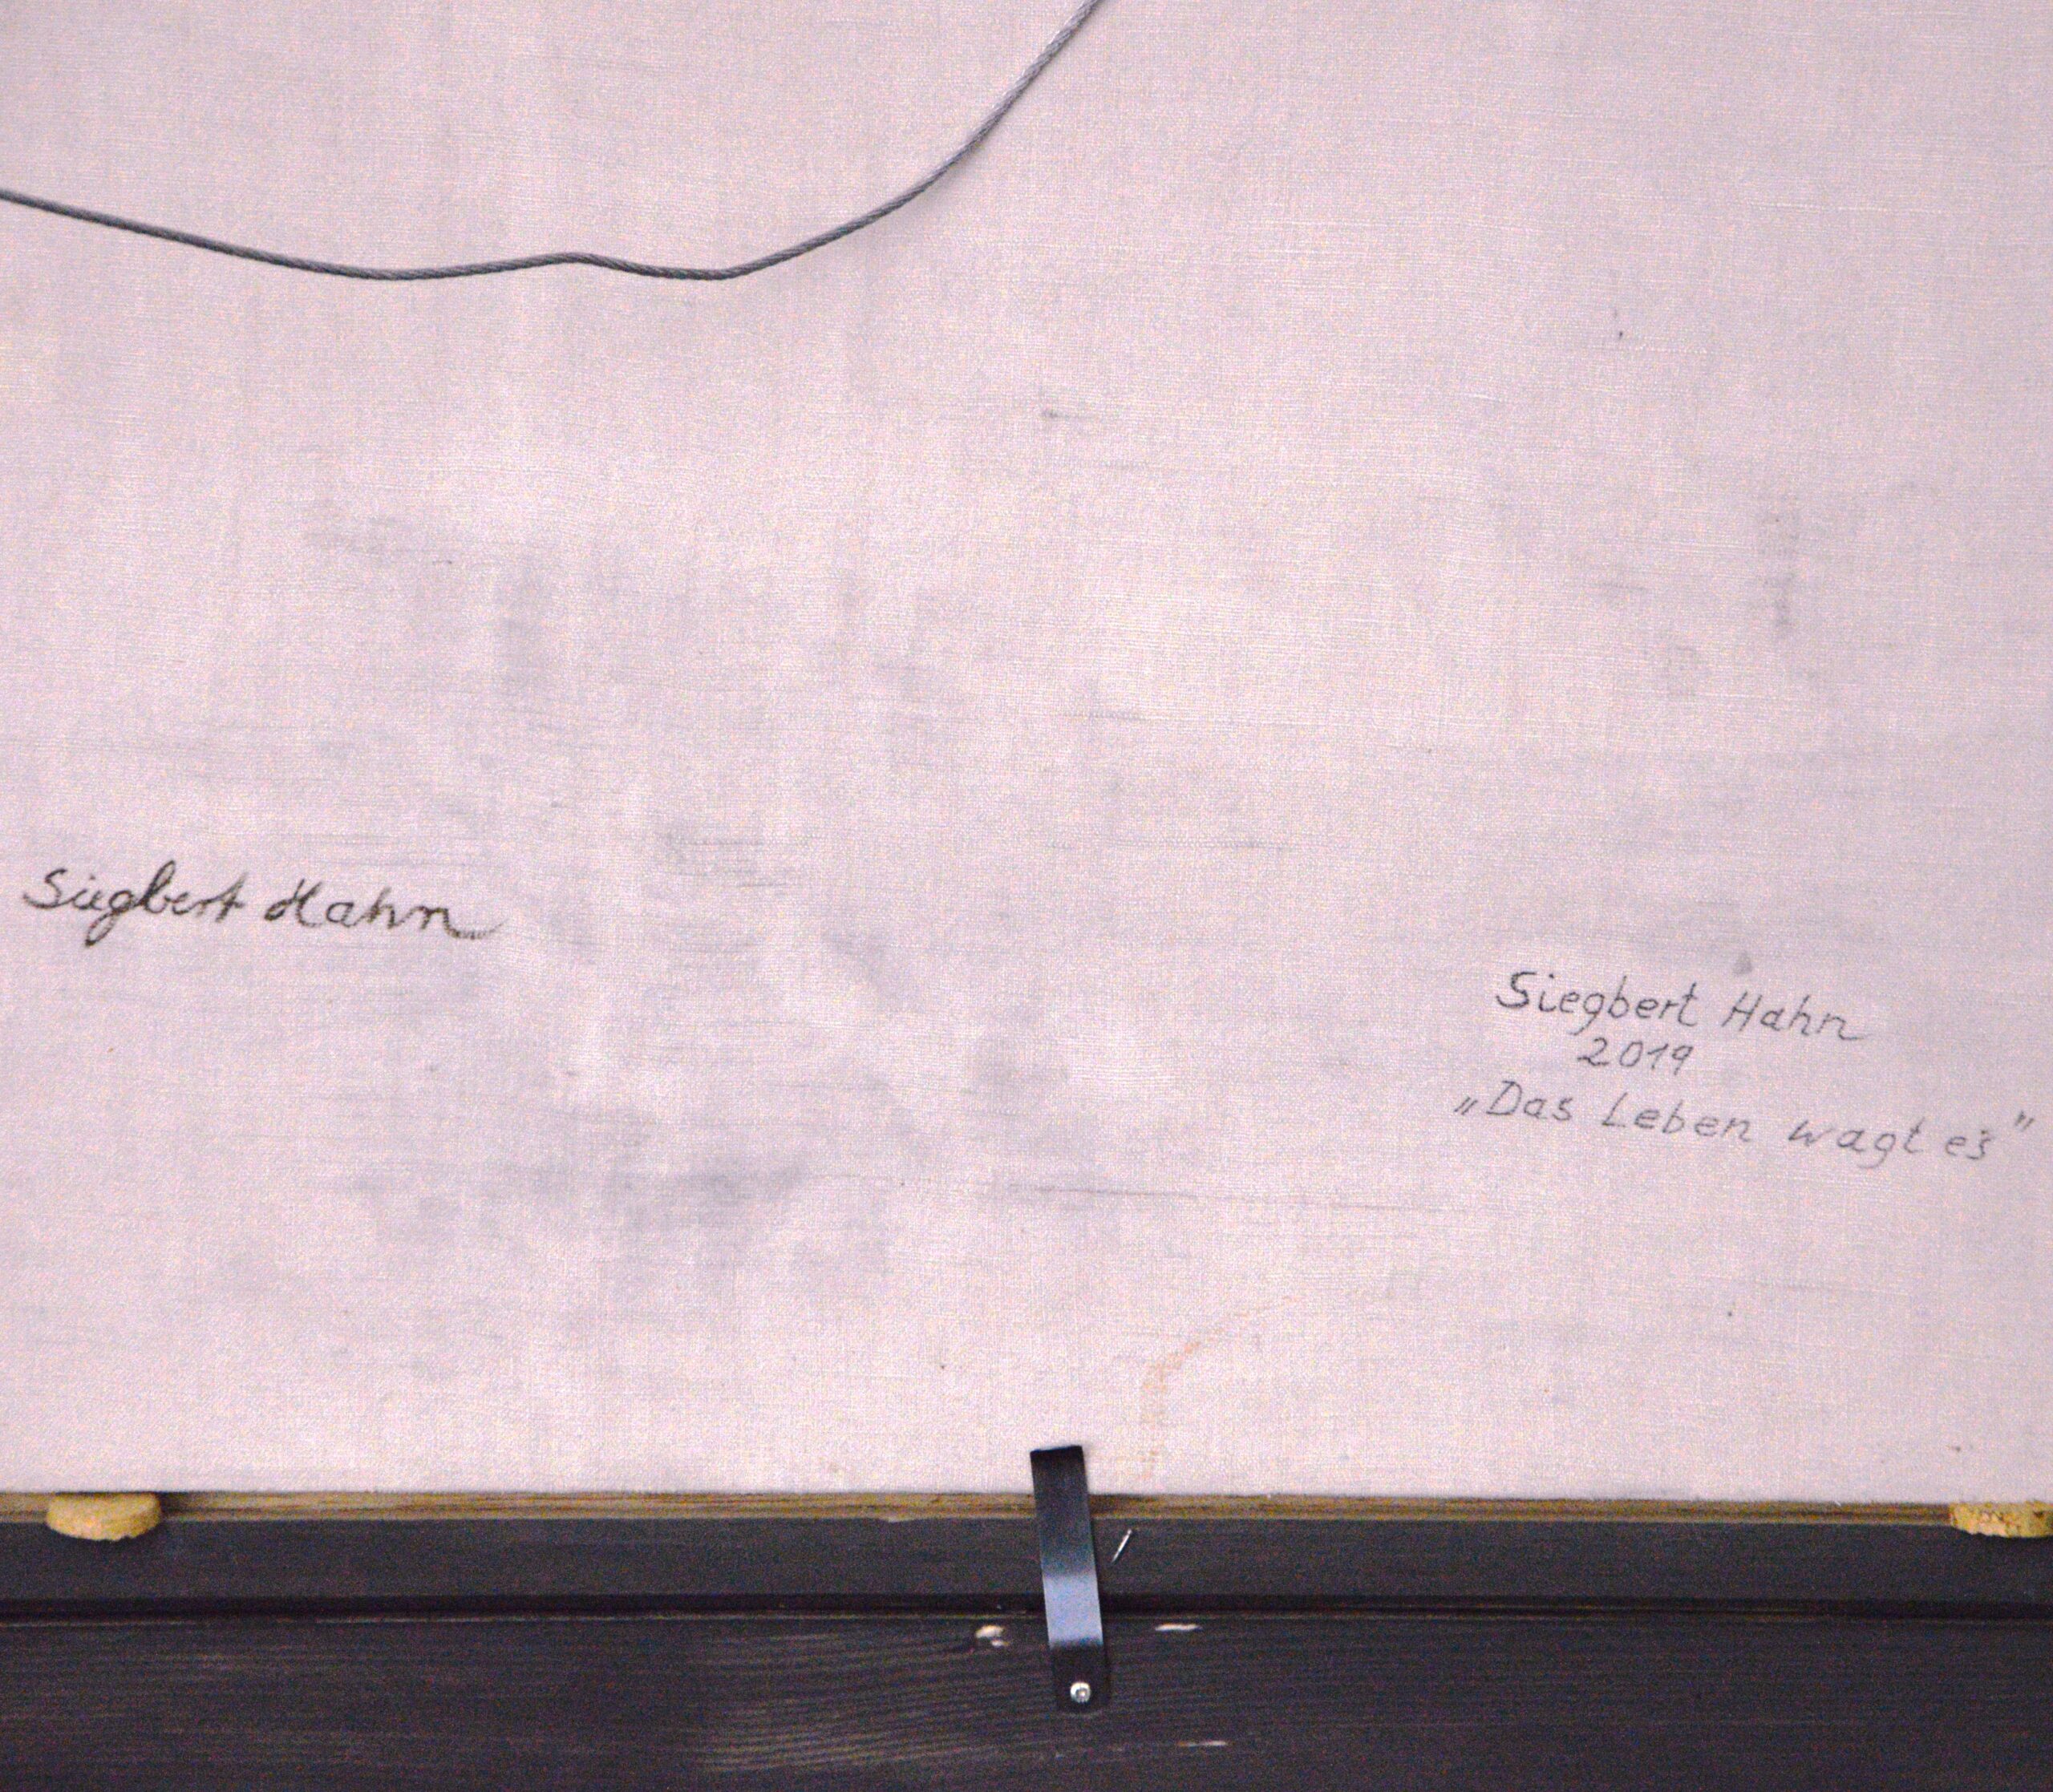 Siegbert Hahn
Siegbert Hahn
2019
„Das Leben wagt es"